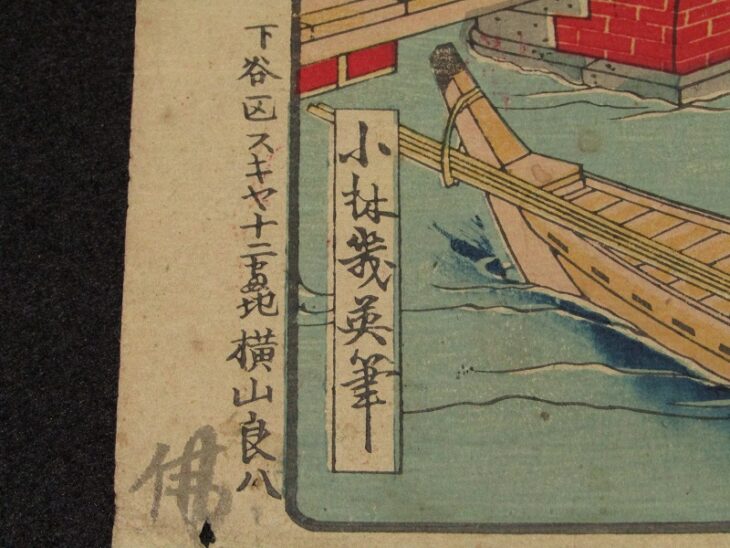 小林幾英筆
下谷区スキヤ十二番地 横山良八
佛